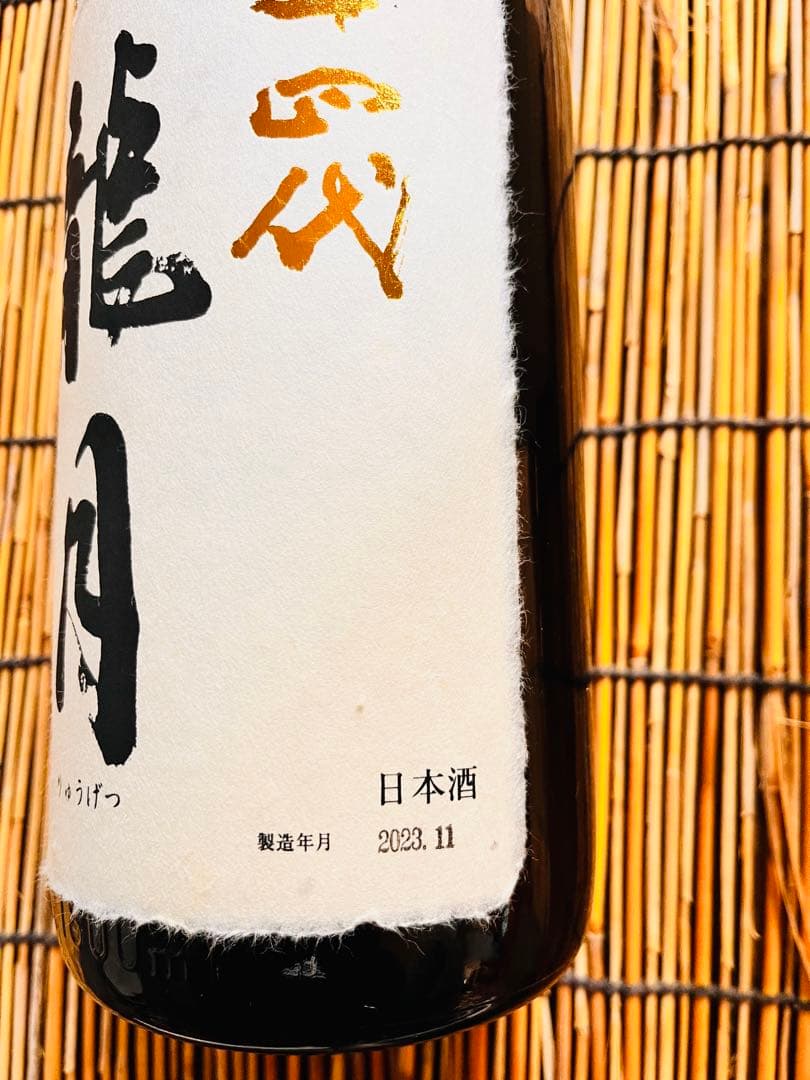 十四代
龍月
りゅうげつ
日本酒
製造年月 2023.11